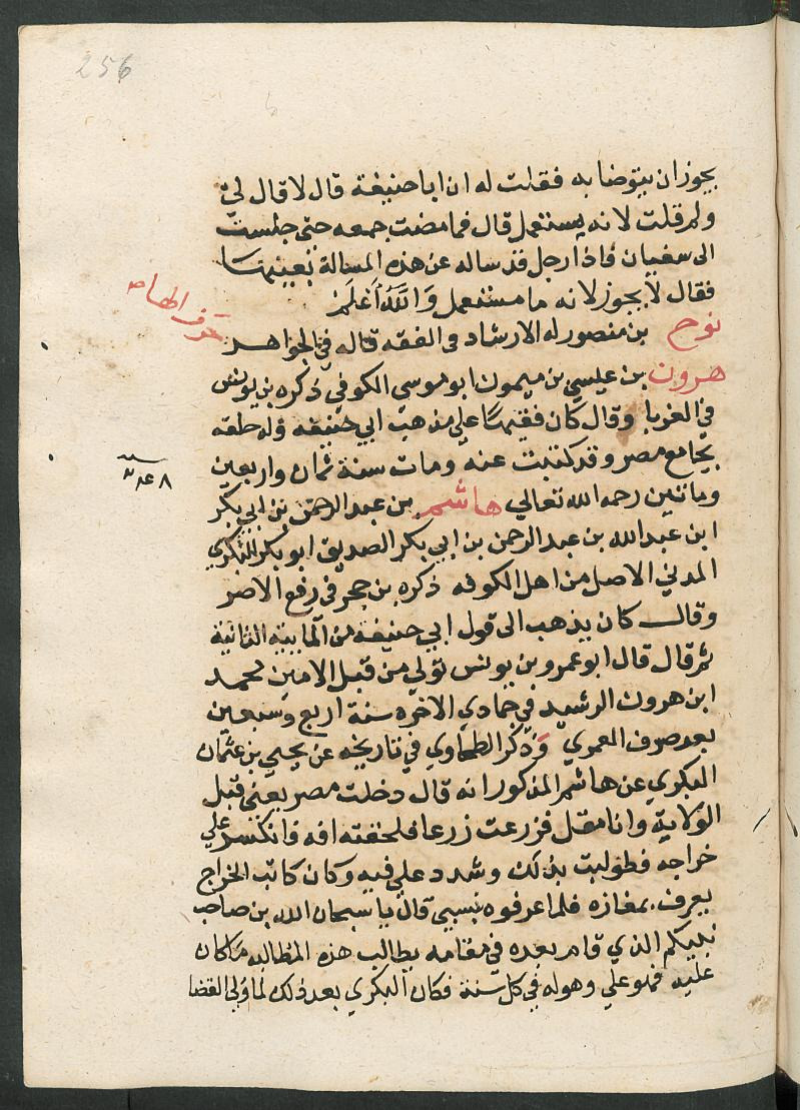 256
يجوز ان يتوضا به فقلت له ان ابا حنيفة قال لا قال لي
ولم قلت لانه يستعمل قال فما مضت جمعه حتى جلست
الى سفيان فاذا رجل قد ساله عن هذه المسالة بعينها
فقال لا يجوز لانه ما مستعمل والله أعلم
حرف الهاء
نوح بن منصور له الارشاد في الفقه قاله في الجواهر
هرون بن عيسي بن ميمون ابو موسي الكوفي ذكره بن يونس
في الغربا وقال كان فقيها علي مذهب ابي حنيفه وله حلقه
بجامع مصر وقد كتبت عنه ومات سنة ثمان واربعين
سنه ٢٤٨
وماتين رحمه الله تعالي هاشم بن عبد الرحمن بن ابي بكر
ابن عبد الله بن عبد الرحمن بن ابي بكر الصديق ابو بكر البكري
المدني الاصل من اهل الكوفه ذكره بن حجر في رفع الاصر
وقال كان يذهب الى قول ابي حنيفة من المايه الثانية
ثم قال قال ابو عمرو بن يونس تولي من قبل الامين محمد
ابن هرون الرشيد في جمادي الاخره سنة اربع وتسعين
بعد صرف العمري وذكر الطحاوي في تاريخه عن يحيي بن عثمان
البكري عن هاشم المذكور انه قال دخلت مصر يعني قبل
الولاية وانا مقل فزرعت زرعا فلحقته افه فانكسر علي
خراجه فطولبت بذلك وشدد علي فيه وكان كاتب الخراج
يعرف بمغازه فلما عرفوه بنسبي قال يا سبحان الله بن صاحب
نبيكم الذي قام بعده في مقامه يطالب هذه المطالبه ما كان
عليه فهو علي وهو له في كل سنة فكان البكري بعد ذلك لما ولي القضا